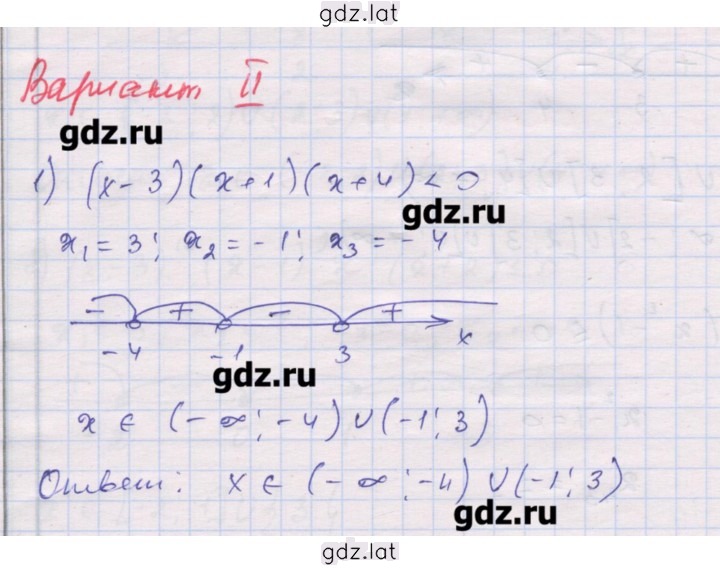 gdz.lat
Вариант II
gdz.ru
1) (x-3)(x+1)(x+4)<0
gdz.ru
x₁=3; x₂=-1; x₃=-4
- + - +
-4 -1 3 x
gdz.ru
x ∈ (-∞;-4)∪(-1;3)
Ответ: x ∈ (-∞;-4)∪(-1;3)
gdz.ru
gdz.lat